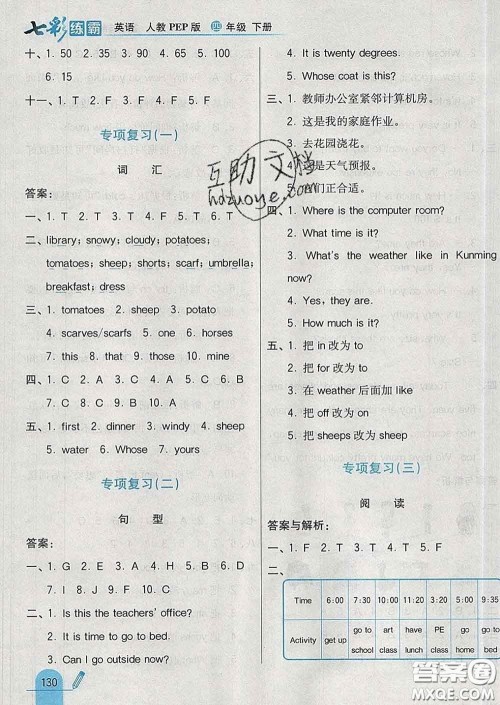 七彩练霸 英语 人教PEP版 四年级 下册
十、1. 50 2. 35 3. 90 4. 15 5. 200
6. 15
十一、1. T 2. F 3. F 4. T 5. F
专项复习(一)
词 汇
答案:
一、1. T 2. T 3. F 4. F 5. T 6. T
二、library; snowy; cloudy; potatoes;
tomatoes; sheep; shorts; scarf; umbrella;
breakfast; dress
三、1. tomatoes 2. sheep 3. potato
4. scarves/scarfs 5. one 6. horses
7. this 8. that 9. those 10. mine
四、1. C 2. A 3. A 4. C 5. B 6. B
7. C 8. A 9. B 10. C
五、1. first 2. dinner 3. windy
4. water 5. Whose 6. yours
专项复习(二)
句 型
答案:
一、1. D 2. H 3. G 4. A 5. C 6. B
7. I 8. J 9. F 10. E
二、1. Is this the teachers' office?
2. It is time to go to bed.
3. Can I go outside now?
4. It is twenty degrees.
5. Whose coat is this?
三、1. 教师办公室紧邻计算机房。
2. 这是我的家庭作业。
3. 去花园浇花。
4. 这是天气预报。
5. 们正合适。
四、1. Where is the computer room?
2. What time is it?
3. What's the weather like in Kunming
now?
4. Yes, they are.
5. How much is it?
五、1. 把 in 改为 to
2. 把 go 改为 to
3. 在 weather 后面加 like
4. 把 off 改为 on
5. 把 sheeps 改为 sheep
专项复习(三)
阅 读
答案与解析:
一、1. F 2. T 3. T 4. T 5. F
二、
Time 6:00 7:00 10:00 11:20 3:20 5:00 9:35
Activity get up go to school art class have lunch PE class go home go to bed
130
互助文档
hazuoye.com
答案圈
MXQE.COM